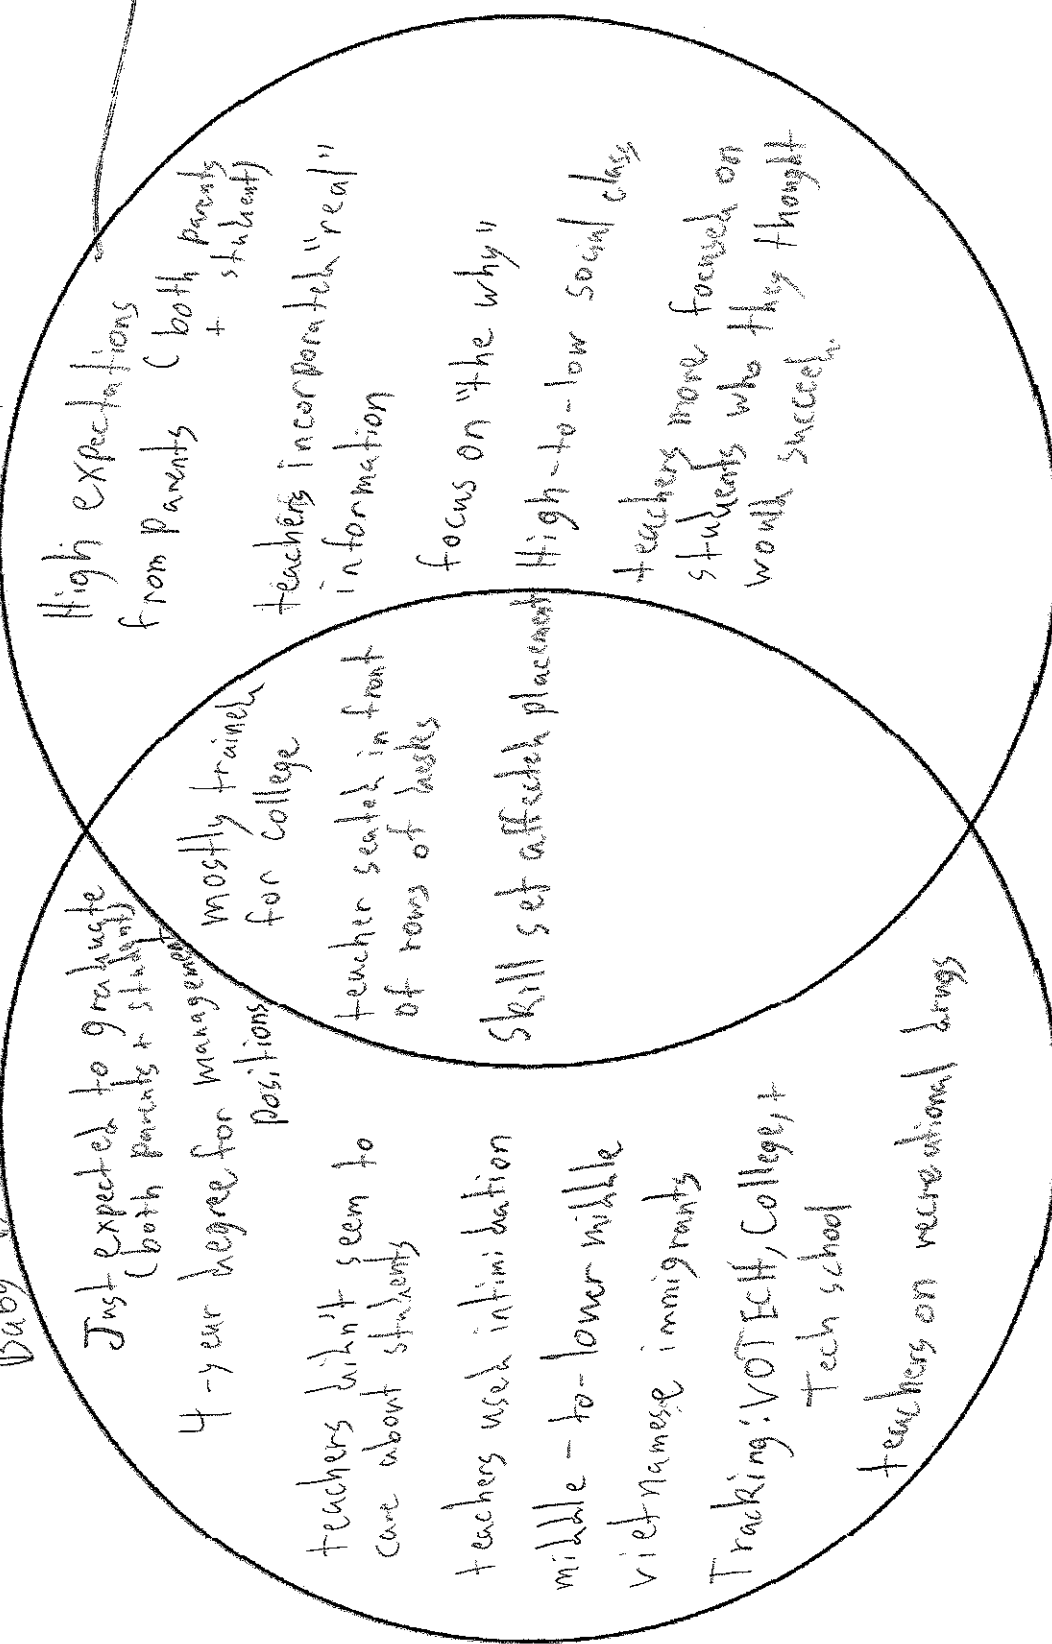 Baby
Just expected to graduate
(both parents + students)
4-year degree for management
positions
teachers didn't seem to
care about students
teachers used intimidation
middle-to-lower middle
vietnamese immigrants
Tracking: VOTECH, College, +
Tech school
teachers on recreational drugs
mostly trained
for college
teacher seated in front
of rows of desks
Skill set affected placement
High expectations
from parents (both parents
+ student)
teachers incorporated "real"
information
focus on "the why"
High-to-low social class
teachers more focused on
students who they thought
would succeed.